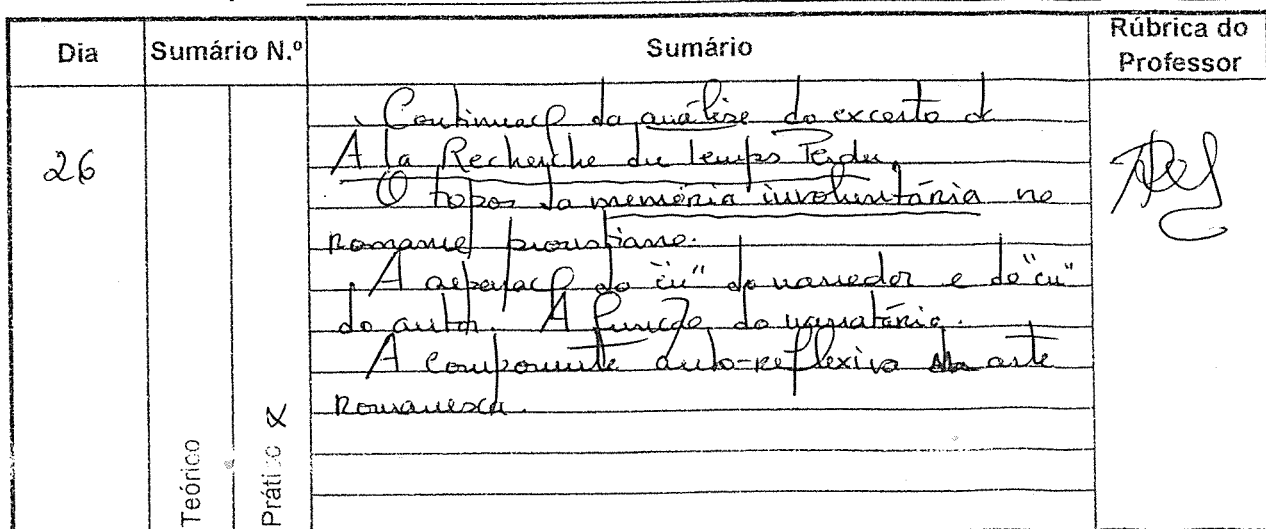 Dia Sumário N.º Sumário Rúbrica do Professor
26
. Continuaç da análise do excerto d
À la Recherche du temps Perdu.
O topos da memória involuntária no
Romance proustiano.
. A separaç do "eu" do narrador e do "eu"
do autor. A função do narratário.
A componente auto-reflexiva da arte
Romanesca.
Teórico
Prático X